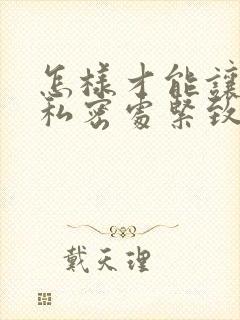 怎樣才能讓
私密處緊致
戴天理